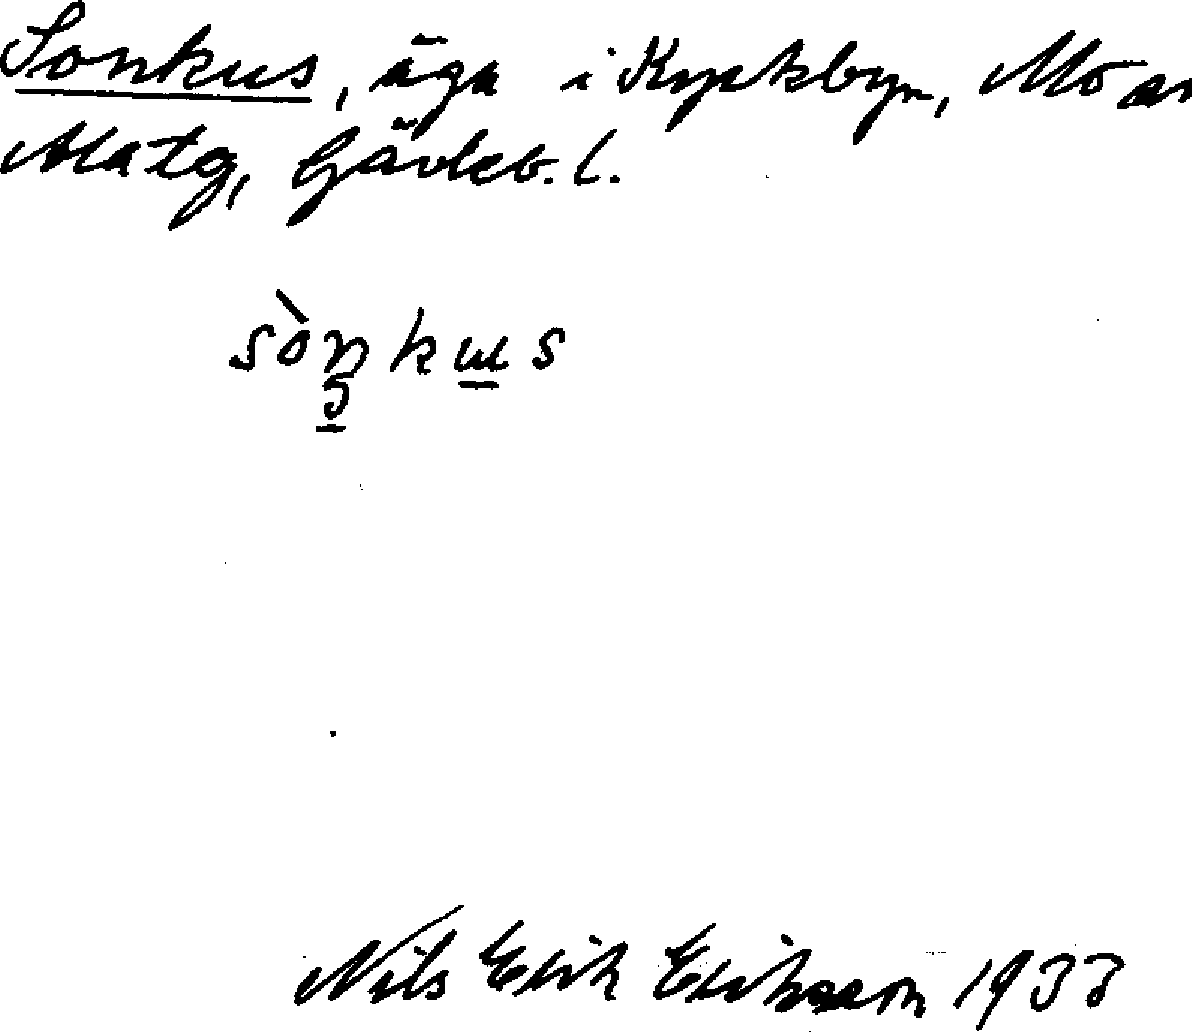 Sonkus, äga i Kyrkbyn, Mo
Matg, Gävleb. l.
sònkus
Nils Erik Eriksson 1933